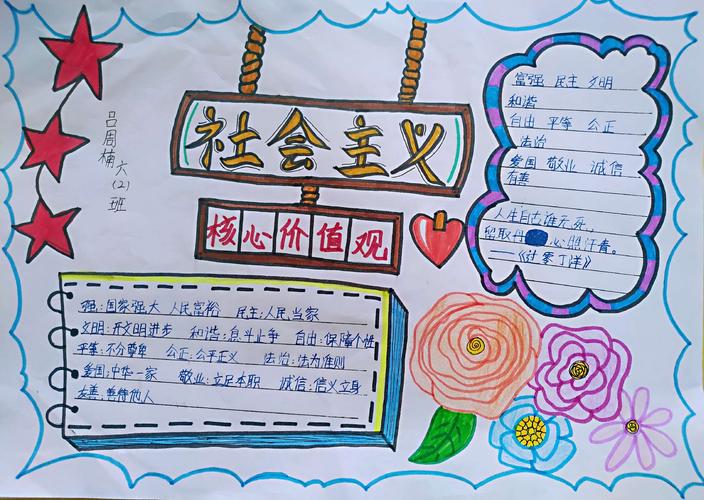 社会主义
核心价值观
吕周楠
六(2)班
富强 民主 文明
和谐
自由 平等 公正
法治
爱国 敬业 诚信
有善
人生自古谁无死，
留取丹 心照汗青。
——《过零丁洋》
强:国家强大 人民富裕 民主:人民当家
文明:开文明进步 和谐:息斗止争 自由:保障个性
平等:不分尊卑 公正:公平正义 法治:法为准则
爱国:中华一家 敬业:立足本职 诚信:信义立身
友善:善待他人